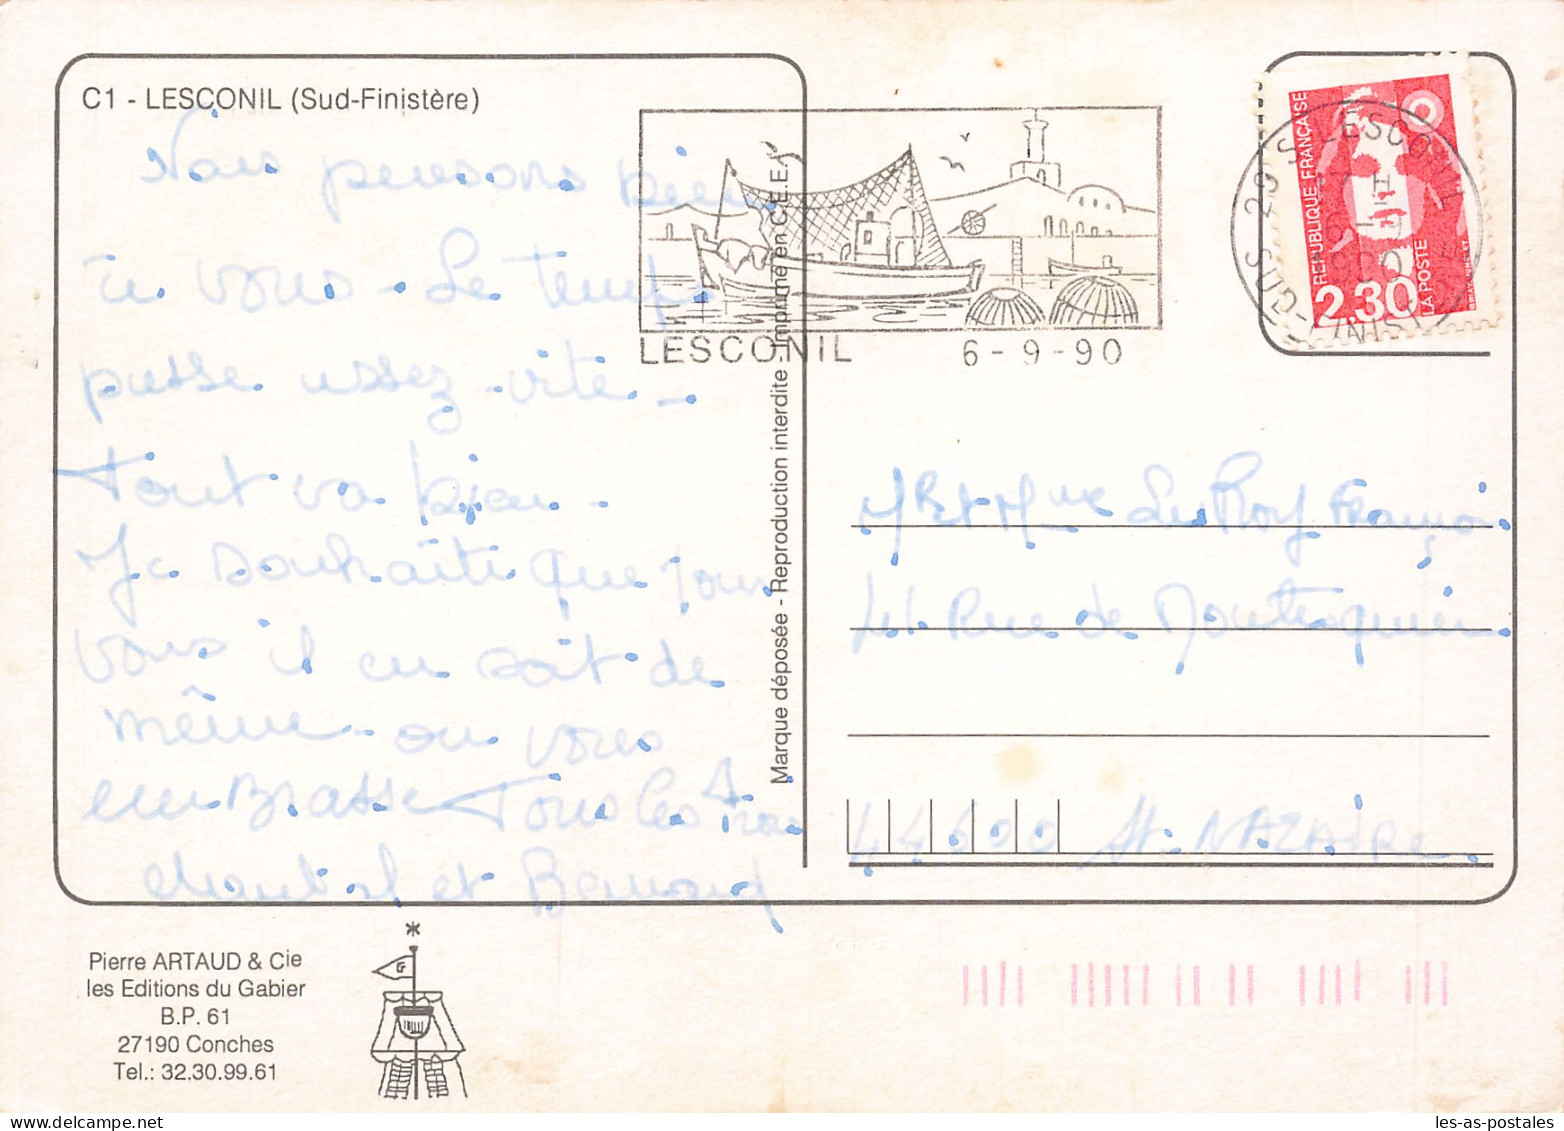 C1 - LESCONIL (Sud-Finistère)
Nous pensons bien
à vous - Le temps
passe assez vite -
Tout va bien -
Je souhaite que pour
vous il en soit de
même - on vous
embrasse Tous les Trois
chantal et Bernard
Marque déposée - Reproduction interdite - Imprimé en C.E.E.
LESCONIL 6-9-90
29 S LESCONIL
6-9
1990
SUD-FINISTERE
REPUBLIQUE FRANÇAISE
2.30
LA POSTE
Mr et Mme Le Roy François
41 Rue de
44600 St. NAZAIRE
Pierre ARTAUD & Cie
les Editions du Gabier
B.P. 61
27190 Conches
Tel.: 32.30.99.61
les-as-postales